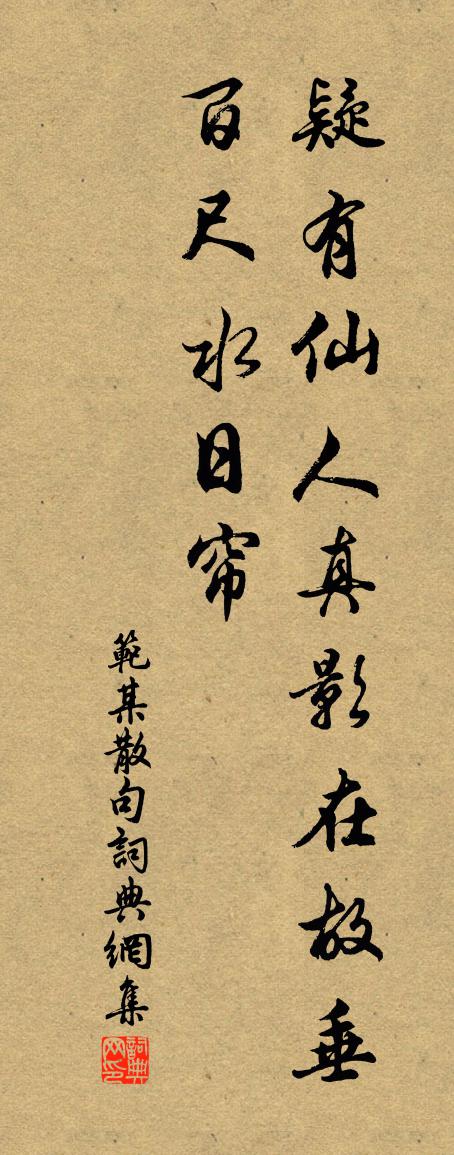 疑有仙人真影在故垂
百尺水日帘
範某散句詞典網集
詞典网印